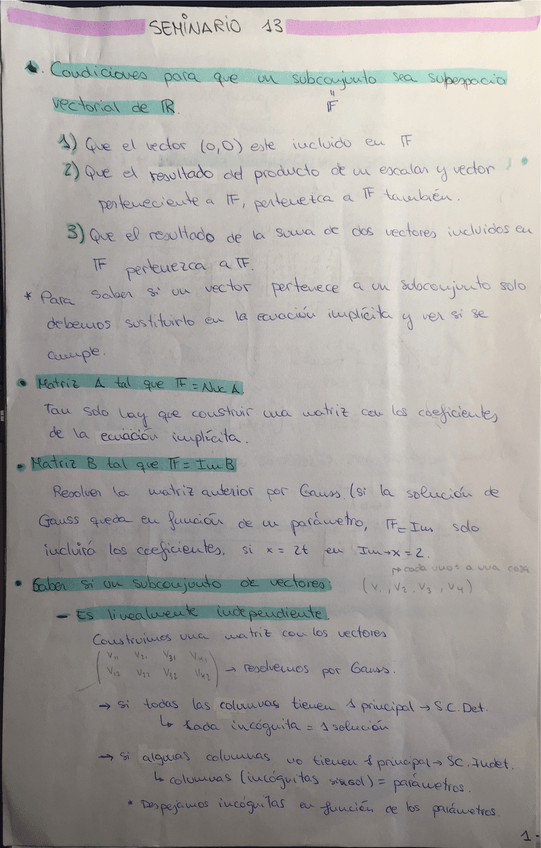 SEMINARIO 13
Condiciones para que un subconjunto sea supespacio
vectorial de R.
"
F
1) Que el vector (0,0) este incluido en F
2) Que el resultado del producto de un escalar y vector
perteneciente a F, pertenezca a F también.
3) Que el resultado de la suma de dos vectores incluidos en
F pertenezca a F.
* Para saber si un vector pertenece a un subconjunto solo
debemos sustituirlo en la ecuación implícita y ver si se
cumple.
• Matriz A tal que F = Nuc A
Tan solo hay que construir una matriz con los coeficientes
de la ecuación implícita.
• Matriz B tal que F = Im B
Resolver la matriz anterior por Gauss. (si la solución de
Gauss queda en función de un parámetro, F = Im solo
incluirá los coeficientes. si x = 2t en Im → x = 2.
• Saber si un subconjunto de vectores:
(v₁, v₂, v₃, v₄)
- Es linealmente independiente
Construimos una matriz con los vectores
(v₁₁ v₂₁ v₃₁ v₄₁
v₁₂ v₂₂ v₃₂ v₄₂) → resolvemos por Gauss.
→ si todas las columnas tienen 1 principal → S.C. Det.
↳ cada incógnita = 1 solución
→ si algunas columnas no tienen 1 principal → SC. Indet.
↳ columnas (incógnitas sin sol) = parámetros.
* Despejamos incógnitas en función de los parámetros
1-